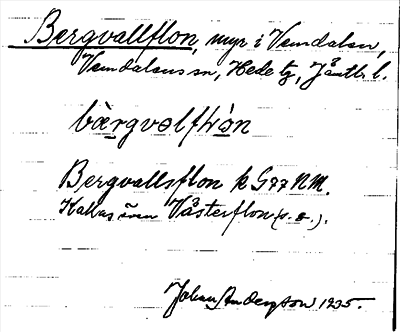 Bergvallflon, myr i Vemdalen,
Vemdalens sn, Hede tg, Jämtl. l.
bärgvəlfɫòn
Bergvallsflon k G77 NM.
Kallas även Västerflon (s. o.).
Johan Anderson 1935.